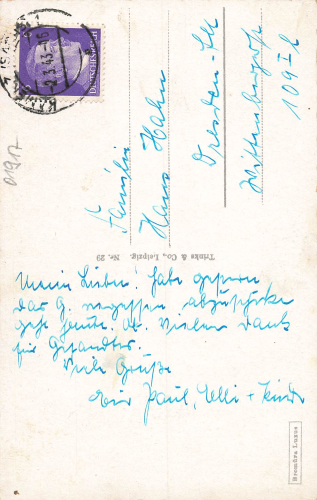 Familie
Hans Hahn
Dresden-
109 I
2.3.43
DEUTSCHES REICH
01917
Trinks & Co., Leipzig. Nr. 29
Meine Lieben! habe gestern
das G. vergessen abzuschicken
geht heute ab. Vielen Dank
für Gesandtes.
Viele Grüße
Paul, Elli + Kinder
Bromüra Luxus